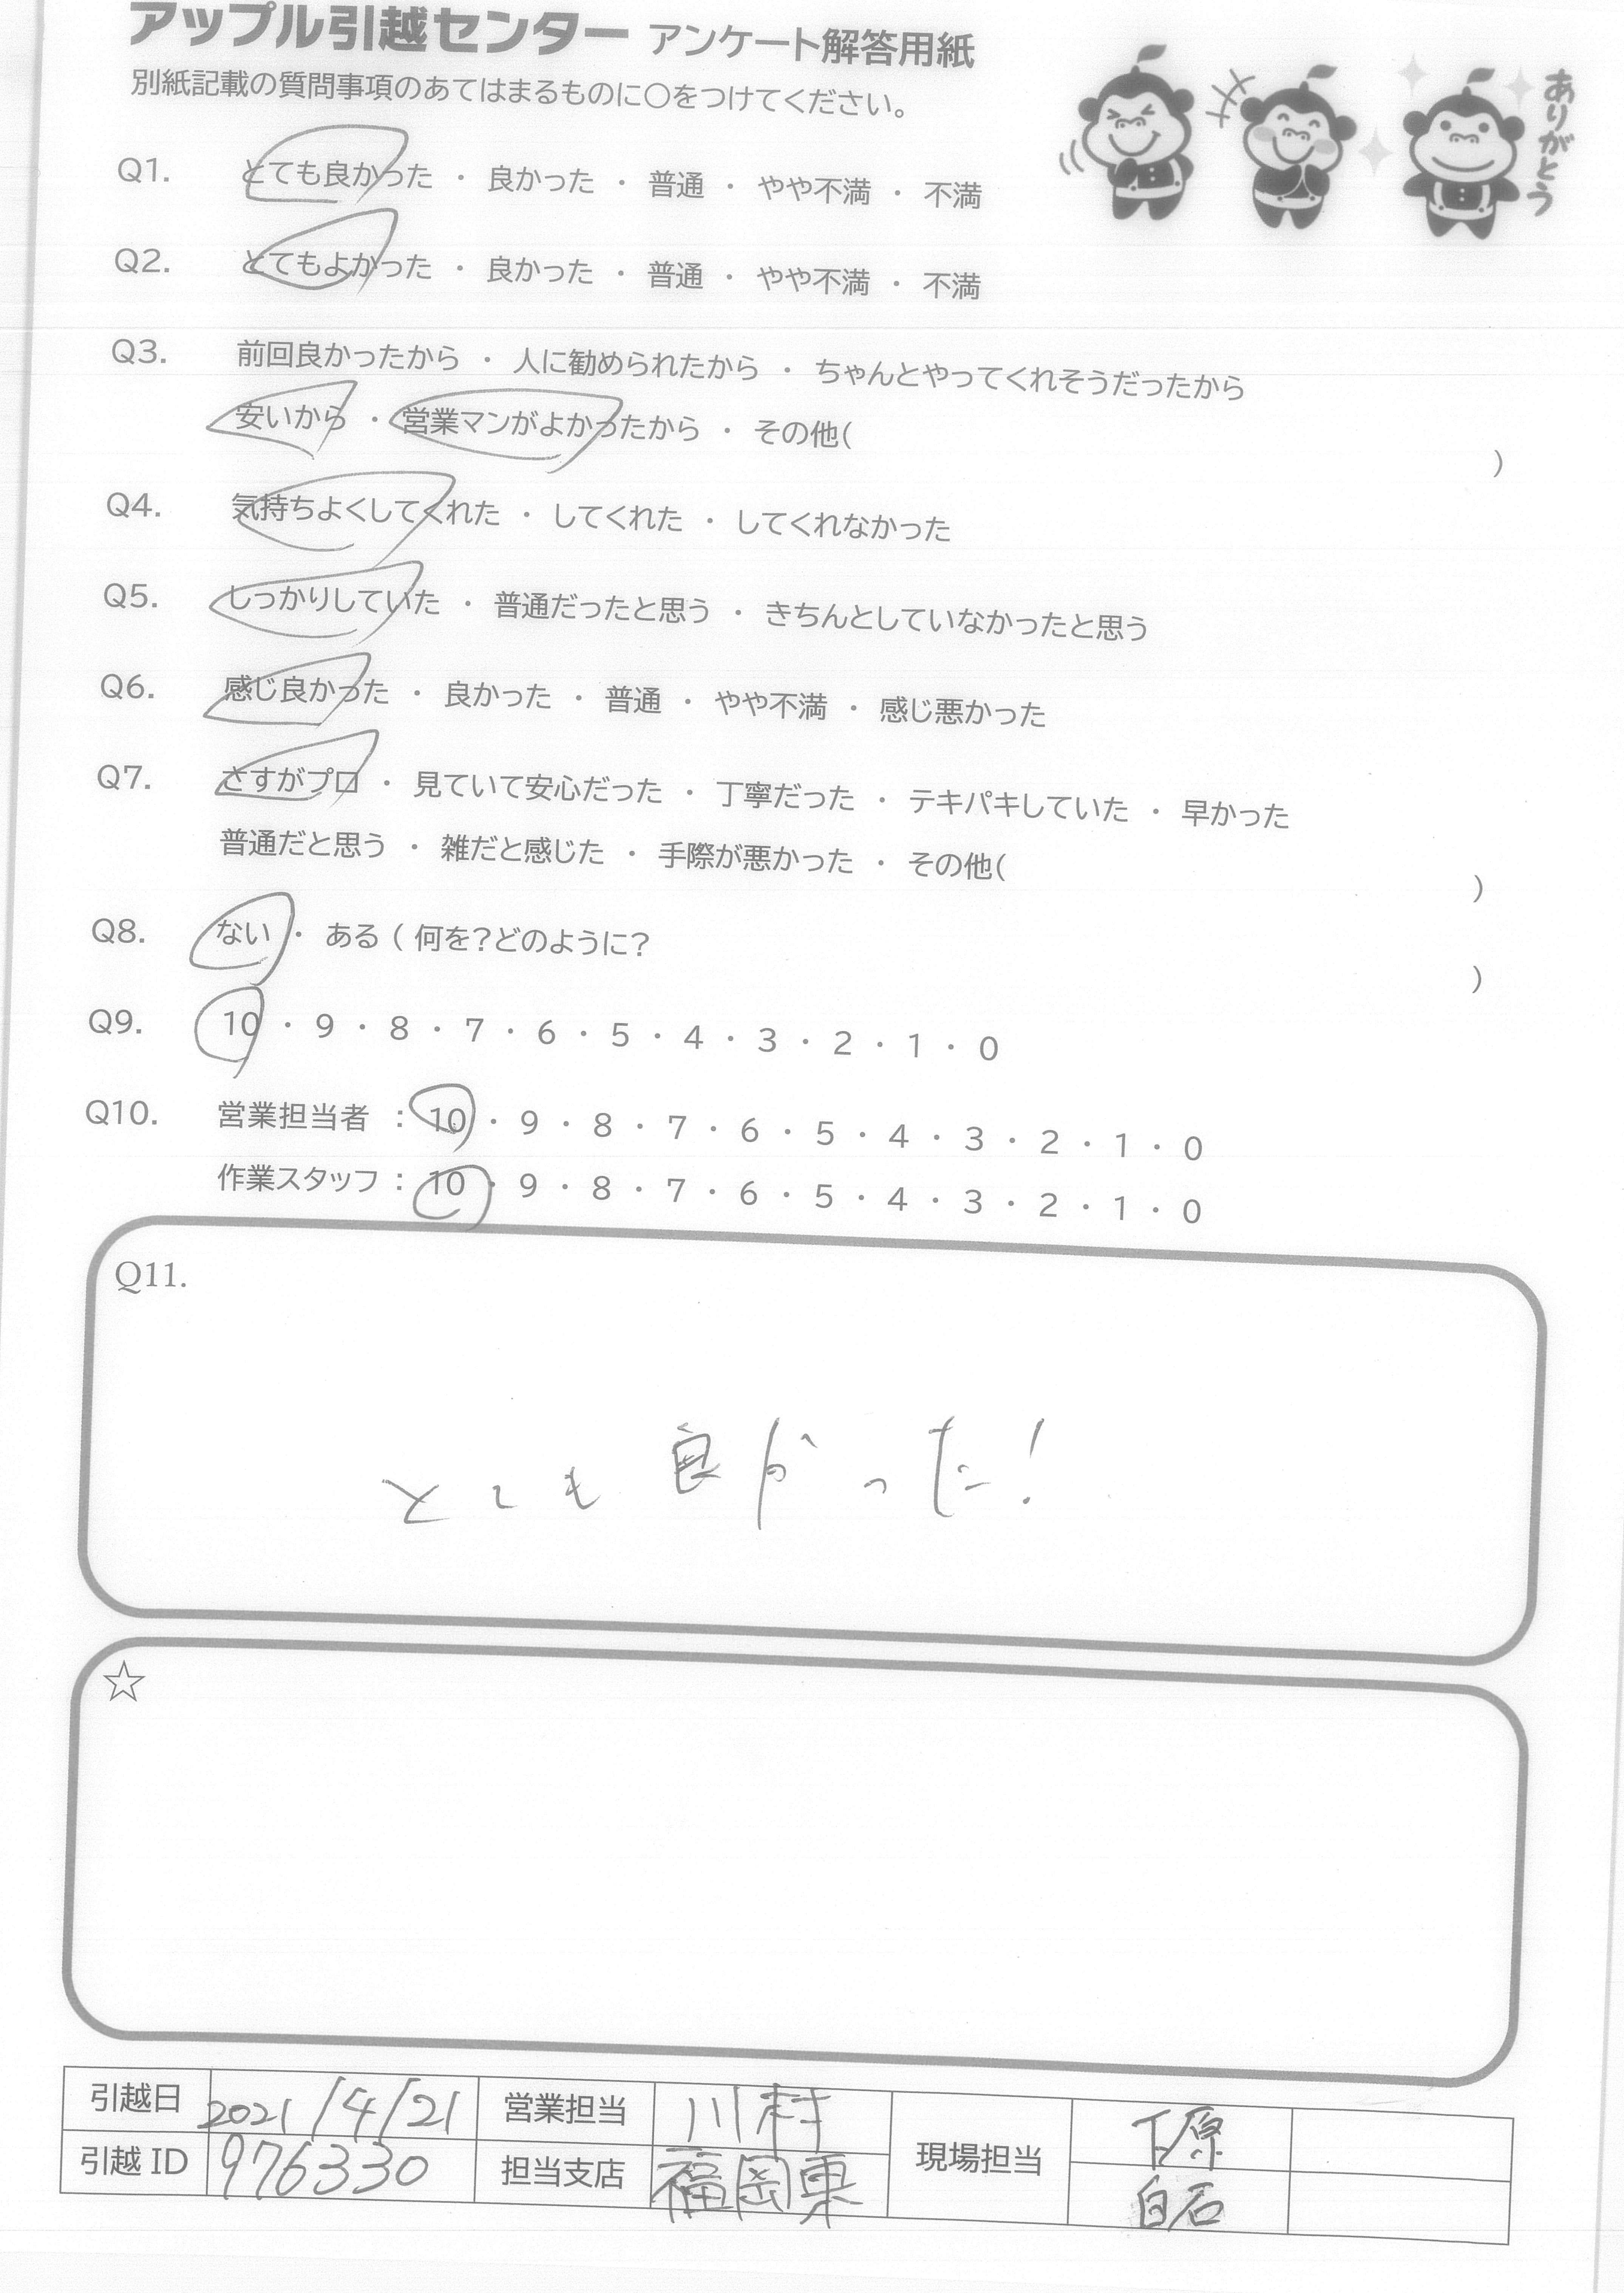 アップル引越センター アンケート解答用紙
別紙記載の質問事項のあてはまるものに〇をつけてください。
ありがとう
Q1. とても良かった ・ 良かった ・ 普通 ・ やや不満 ・ 不満
Q2. とてもよかった ・ 良かった ・ 普通 ・ やや不満 ・ 不満
Q3. 前回良かったから ・ 人に勧められたから ・ ちゃんとやってくれそうだったから
安いから ・ 営業マンがよかったから ・ その他( )
Q4. 気持ちよくしてくれた ・ してくれた ・ してくれなかった
Q5. しっかりしていた ・ 普通だったと思う ・ きちんとしていなかったと思う
Q6. 感じ良かった ・ 良かった ・ 普通 ・ やや不満 ・ 感じ悪かった
Q7. さすがプロ ・ 見ていて安心だった ・ 丁寧だった ・ テキパキしていた ・ 早かった
普通だと思う ・ 雑だと感じた ・ 手際が悪かった ・ その他( )
Q8. ない ・ ある ( 何を?どのように? )
Q9. 10 ・ 9 ・ 8 ・ 7 ・ 6 ・ 5 ・ 4 ・ 3 ・ 2 ・ 1 ・ 0
Q10. 営業担当者 : 10 ・ 9 ・ 8 ・ 7 ・ 6 ・ 5 ・ 4 ・ 3 ・ 2 ・ 1 ・ 0
作業スタッフ : 10 ・ 9 ・ 8 ・ 7 ・ 6 ・ 5 ・ 4 ・ 3 ・ 2 ・ 1 ・ 0
Q11.
とても良かった!
☆
引越日 2021/4/21 営業担当 川村 現場担当 下原
引越ID 976330 担当支店 福岡東 白石